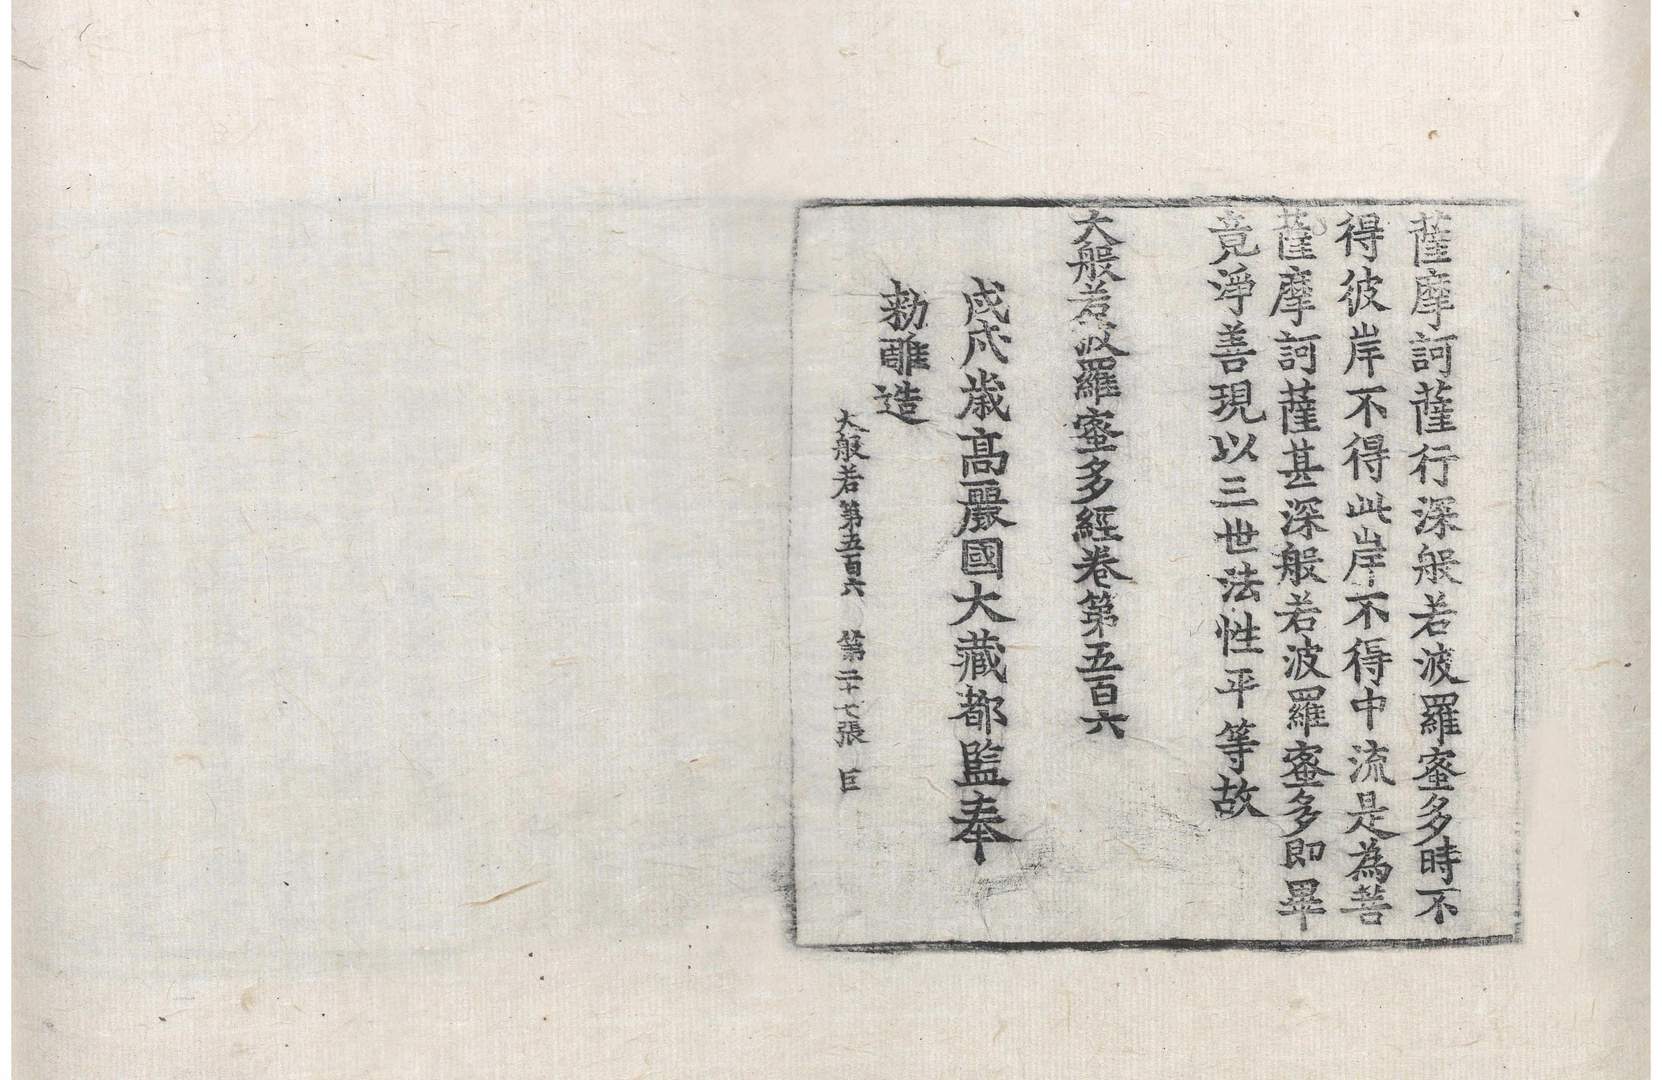 薩摩訶薩行深般若波羅蜜多時不
得彼岸不得此岸不得中流是為菩
薩摩訶薩甚深般若波羅蜜多即畢
竟淨善現以三世法性平等故
大般若波羅蜜多經卷第五百六
戊戌歳高麗國大藏都監奉
勑雕造
大般若第五百六 第二十七張 巨